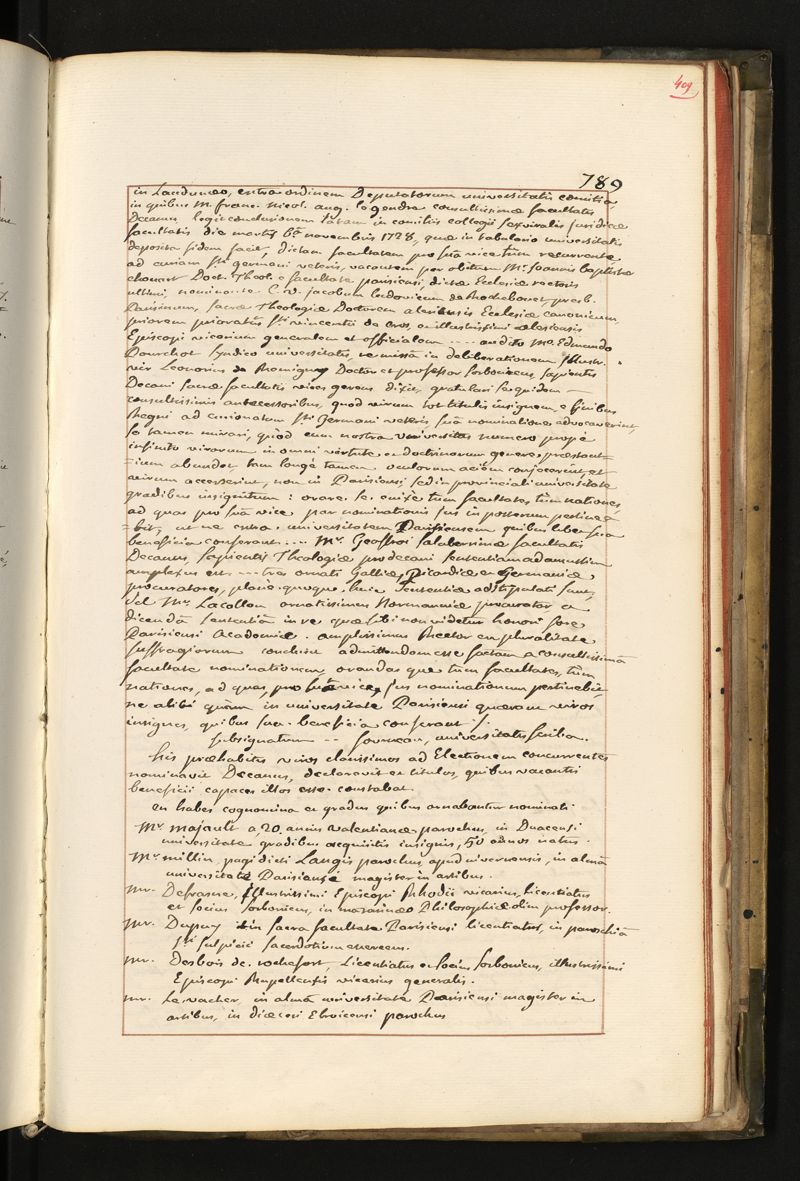 409
789
in Laudunaeo, extra ordinem Deputatorum universitatis comitia
in quibus M. franc. nicol. aug. le gendre consultissimae facultatis
Decanus legit conclusionem latam in comitiis collegii sexviralis juridicae
facultatis die martis 6ta novembris 1728, quae in tabulario universitatis
deposita fidem facit, dictam facultatem pro suâ vice tùm recurrente
ad curiam Sti germani veteris, vacantem per obitum Mri Joannis baptistae
chouart Doct. Theol. e facultate parisiensi, dictae Ecclesiae rectoris
ultimi, nominasse C. V. jacobum ludovicum de Rochebouet, presb.
Parisinum, sacrae Theologiae Doctorem alesiensis Ecclesiae canonicum
priorem prioratûs Sti vincentii de Cros, et illustrissimi alesiensis
Episcopi vicarium generalem et officialem .... audito Mro Edmundo
Pourchot syndico universitatis, re missâ in deliberationem, Illustr.
vir Leonorius de Romigny Doctor et professor sorbonicus, sapientis
Decani sacrae facultatis vices gerens dixit, gratulari se quidem
consultissimis antecessoribus, quod virum tot titulis insignem, e finibus
Regni ad curionatum Sti Germani veteris, suâ nominatione advocaverint,
se tamen mirari, quòd cum nostra universitas numero propè
infinito virorum in omni virtute et doctrinarum genere praestant=
=ium abundet, tam longè tamen oculorum aciem conjecerint, et
virum accersierint, non in Parisiensi sed in provinciali universitate
gradibus insignitum : orare se enixe tùm facultates, tùm nationes,
ad quas pro suâ vice per nominationis jus in posterum pertine=
=bit, ut ne extra universitatem Parisiensem quibuslibet sua
beneficia conferant .... Mr. Geoffroi saluberrimae facultatis
Decanus, sapientis Theologiae prodecani sententiam adamussim
amplexus est .... tres ornati Galliae, Picardiae et Germaniae,
procuratores, planè quoque huic sententiae adstipulati sunt,
sed Mr. Lacollon ornatissimus Normanniae procurator a
dicendâ sententiâ in re quae sibi non videtur honori fore
Parisiensi Academiae. amplissimus Rector ex pluralitate
suffragiorum conclusit admittendam esse factam a consultissimâ
facultate nominationem orandas que tùm facultates, tùm
nationes, ad quas, pro suâ vice, jus nominationum pertinebit,
ne alibi quàm in universitate Parisiensi quaerant viros
insignes, quibus sua beneficia conferant ./.
subsignatum .. fourneau, universitatis scriba.
his praehabitis viros clarissimos ad Electionem concurrentes
nominavit Decanus, declaravit et titulos, quibus vacantis
beneficii capaces illos esse constabat.
en habes cognomina et gradus quibus ornabantur nominati.
Mr. majault a 20. annis valentianae parochus, in Duacensi
universitate gradibus acquisitis insignis, 50 annos natus.
Mr. millin pagi dicti Langis parochus, apud nivernensis, in almâ
universitate Parisiensi magister in artibus.
mr. Defrasne, Illustrissimi Episcopi Rhodii vicarius, licentiatus
et socius sorbonicus, in mazarinaeo Philosophiae olim professor.
mr. Dupuy in sacra facultate Parisiensi licentiatus, in parochiâ
Sti sulpicii sacerdotium exercens.
mr. Desbois de rochefort, Licentiatus et socius sorbonicus, illustrissimi
Episcopi Rupellensis vicarius generalis.
mr. Le vacher, in almâ universitate Parisiensi magister in
artibus, in dioecesi Ebroicensi parochus